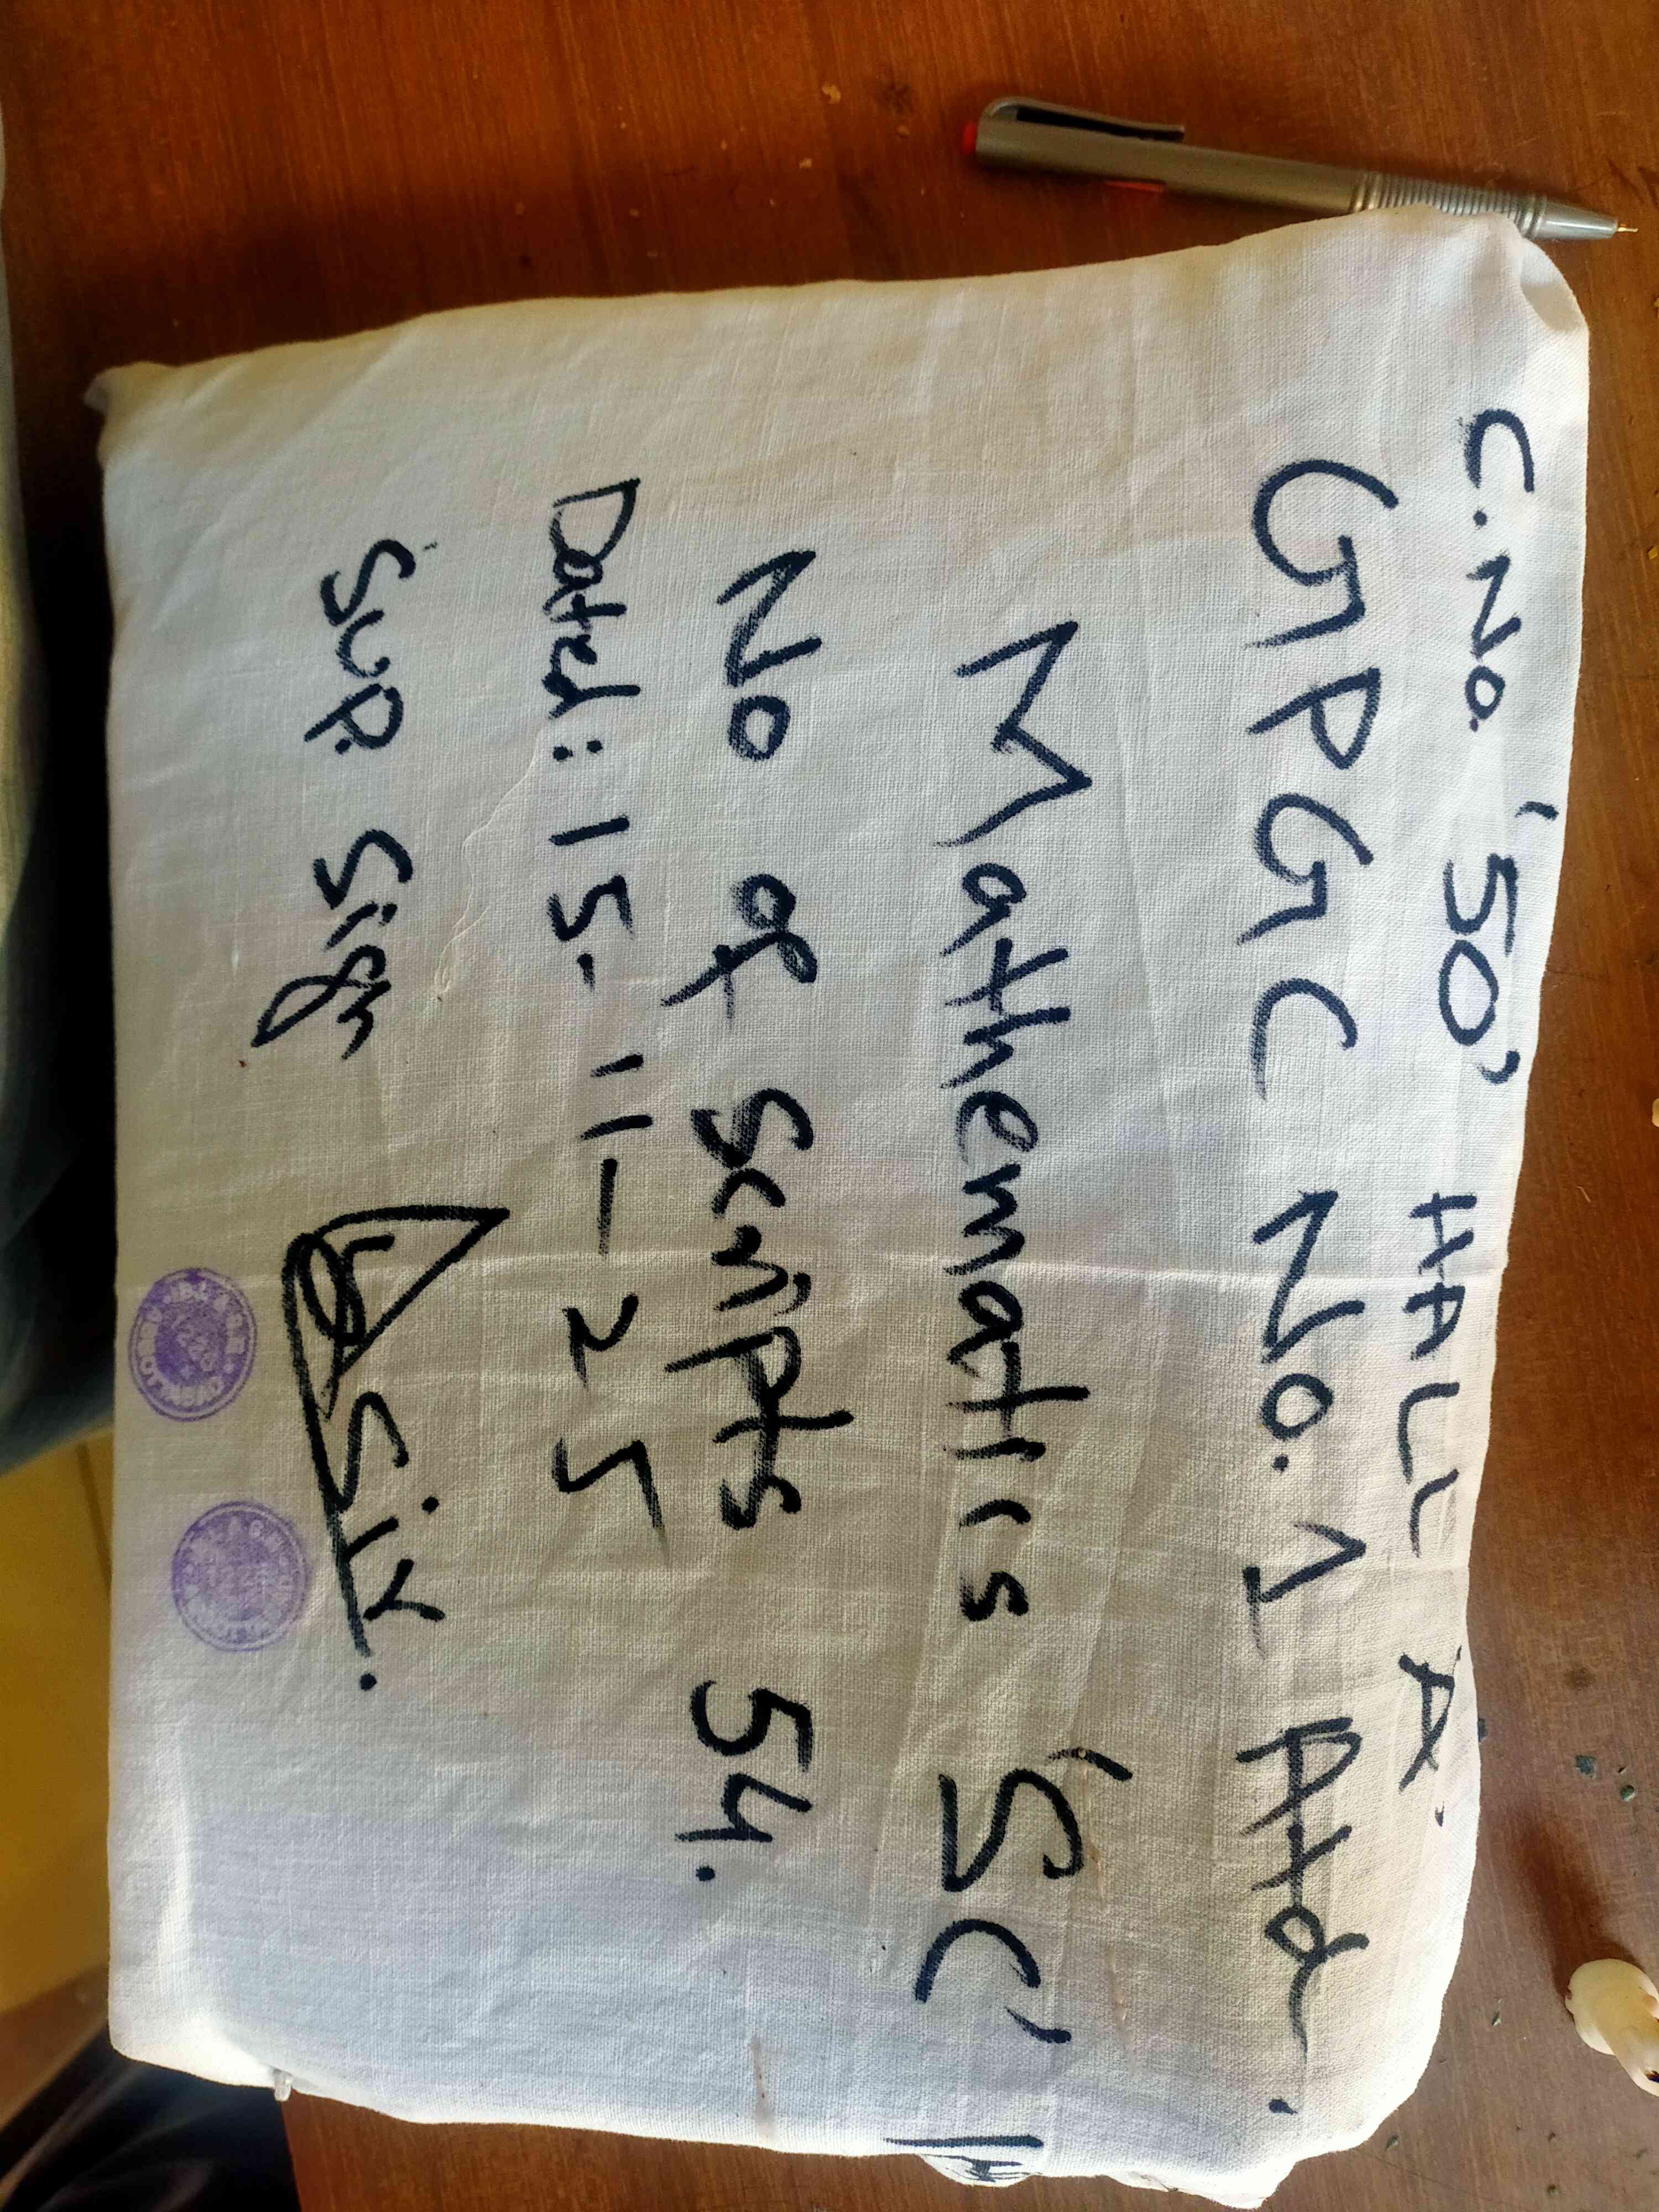 C.No. '50' HALL A,
GPGC No.1 Atd.
Mathematics 'SC'
No of Scripts 54.
Dated: 15-11-25
Sup. Sign